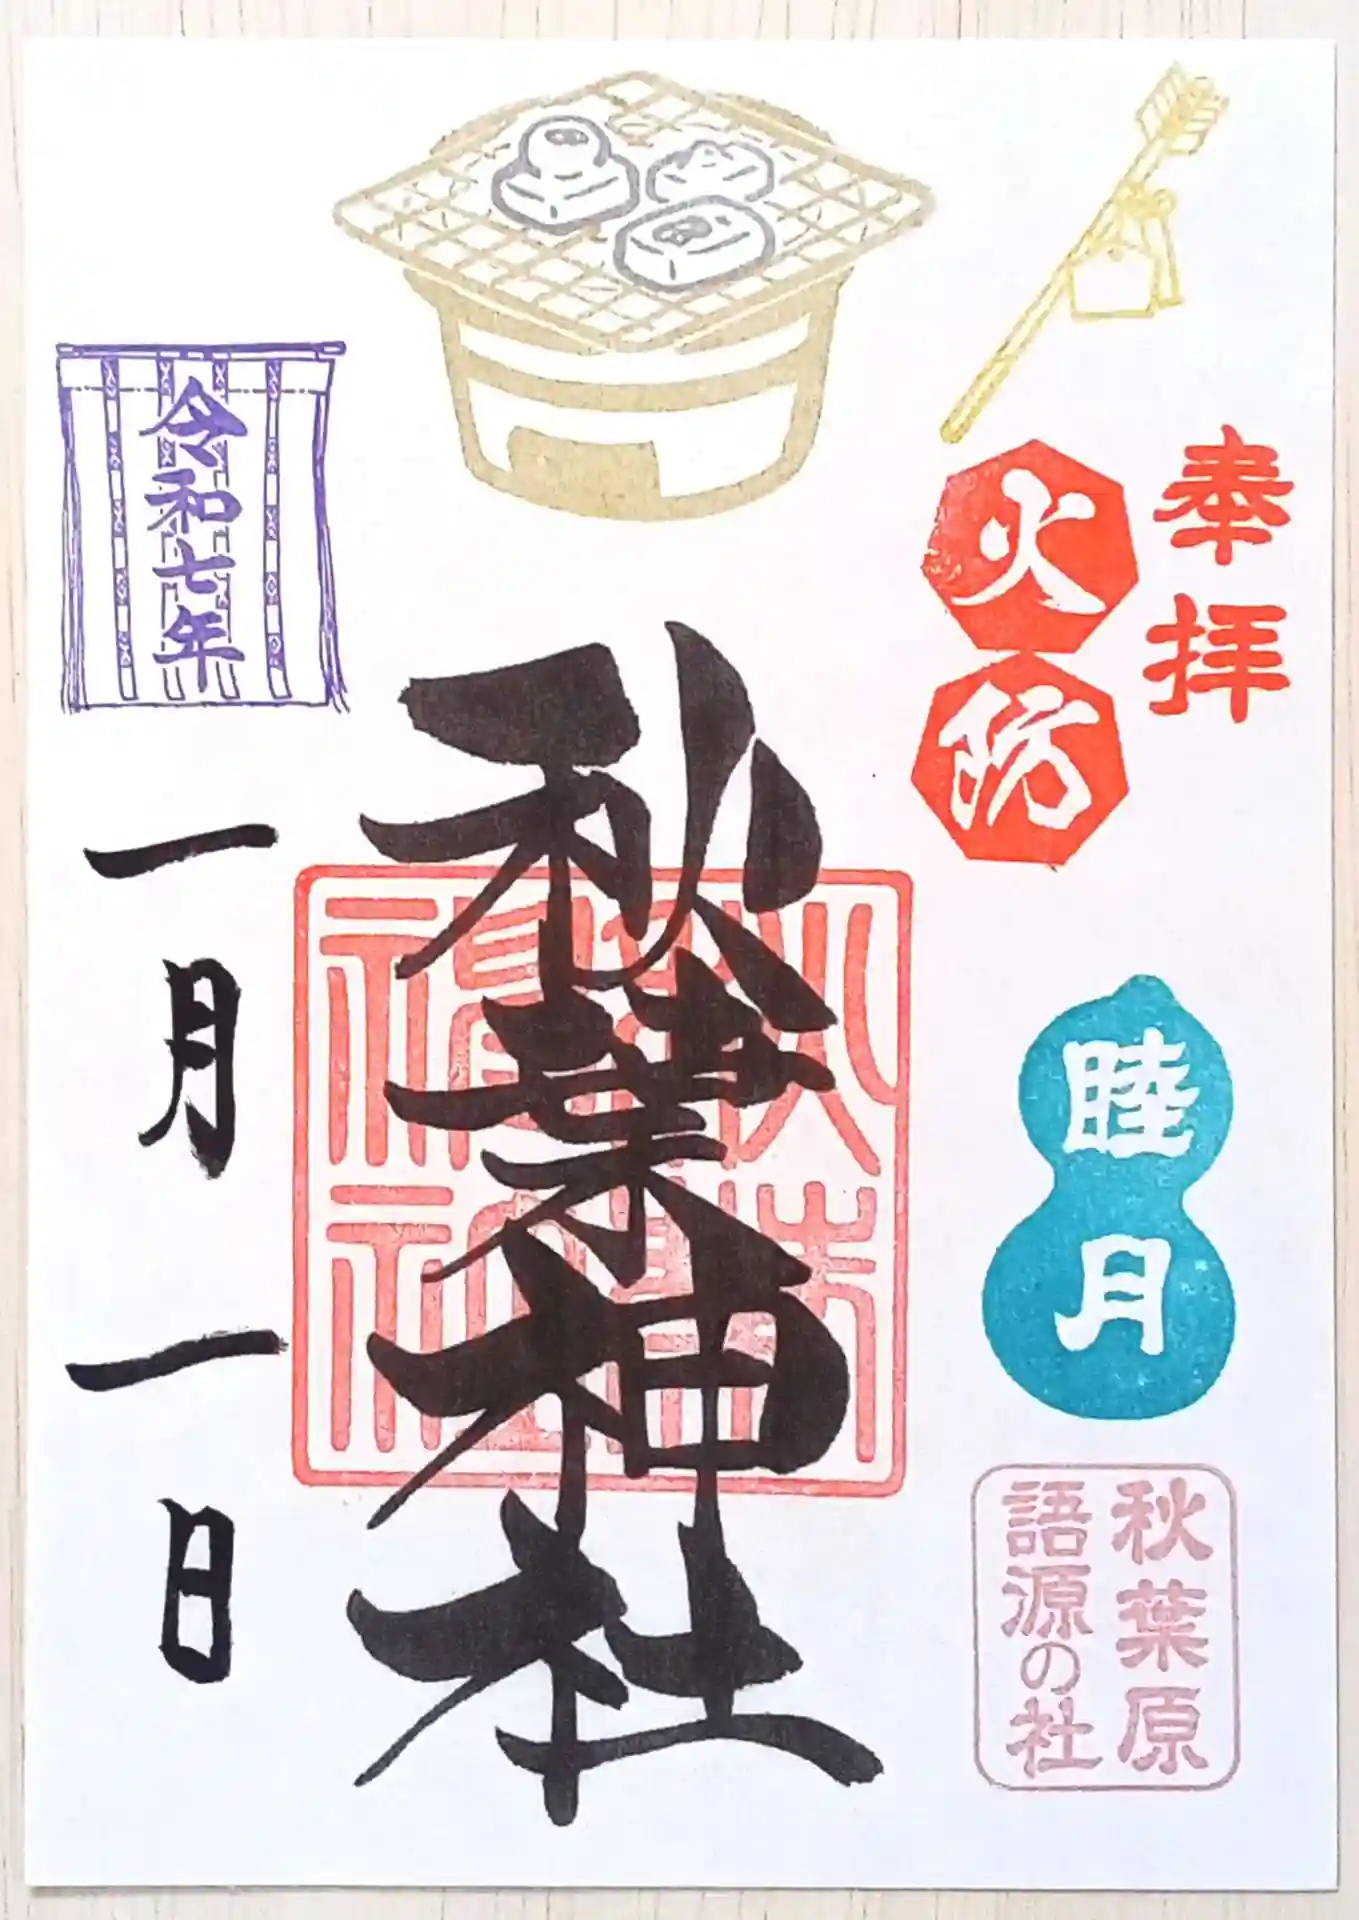 奉拝
火防
睦月
秋葉原
語源の社
秋葉神社
令和七年
一月一日